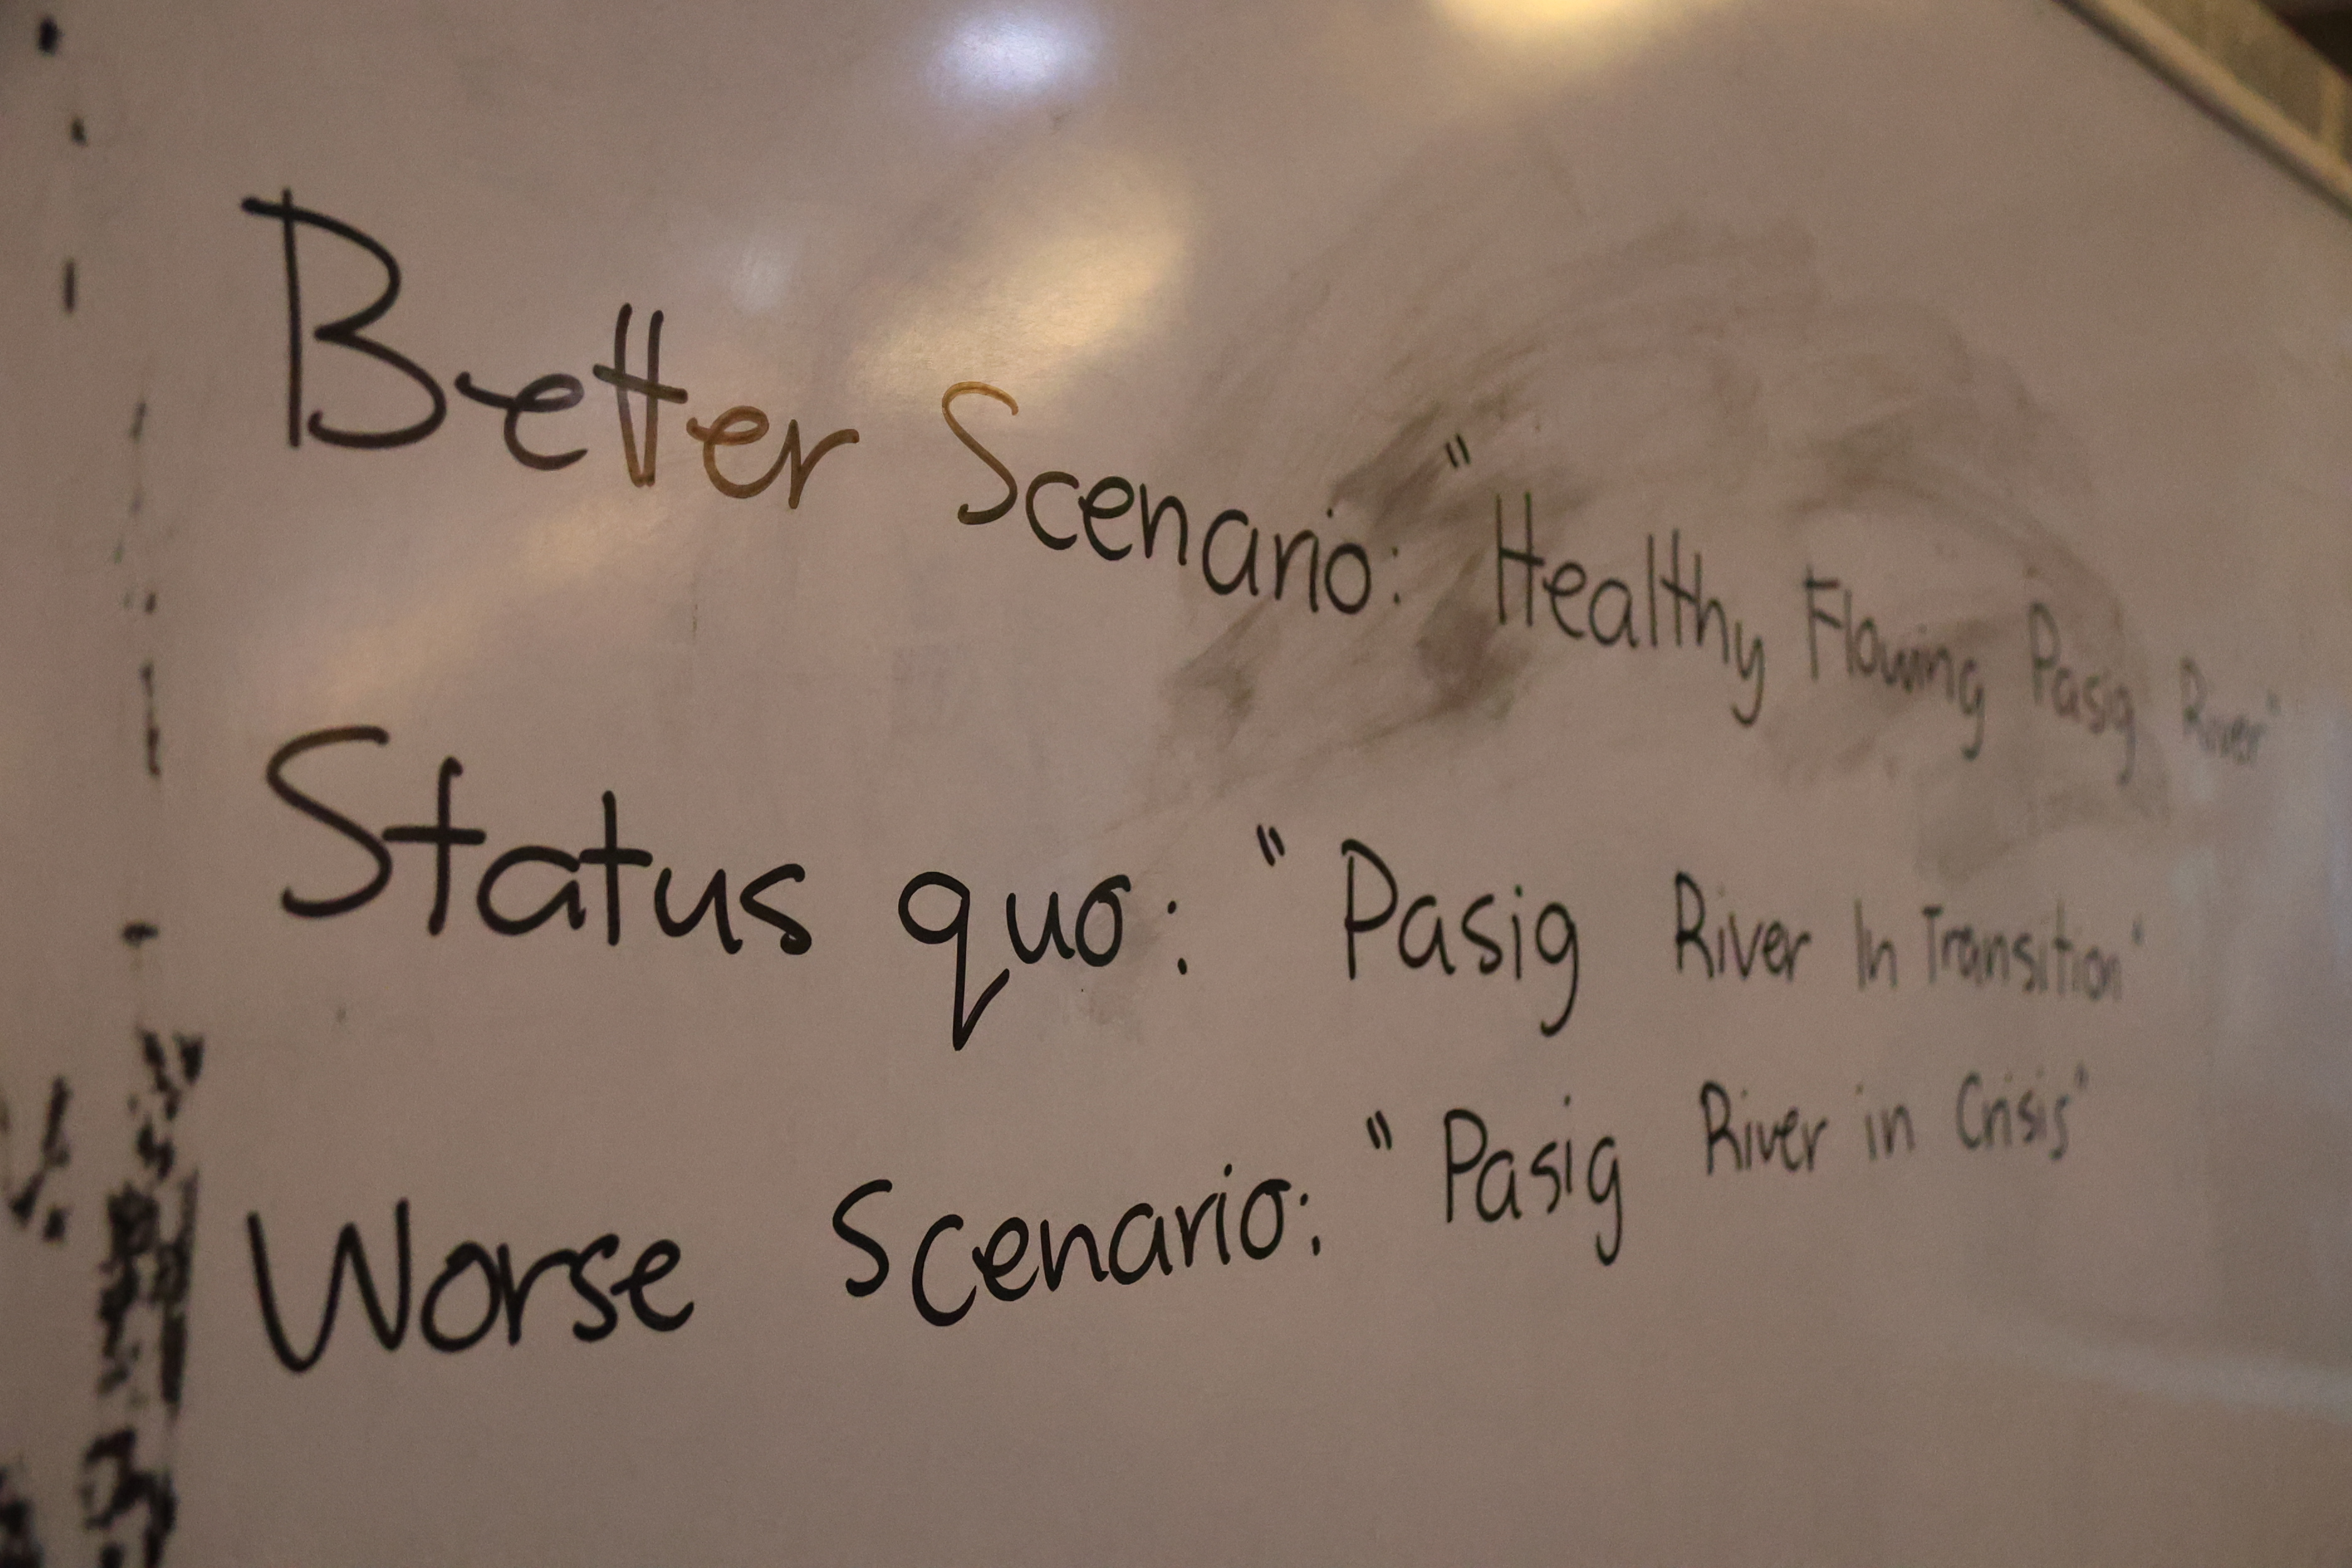 Better Scenario: "Healthy Flowing Pasig River"
Status quo: "Pasig River In Transition"
Worse Scenario: "Pasig River in Crisis"